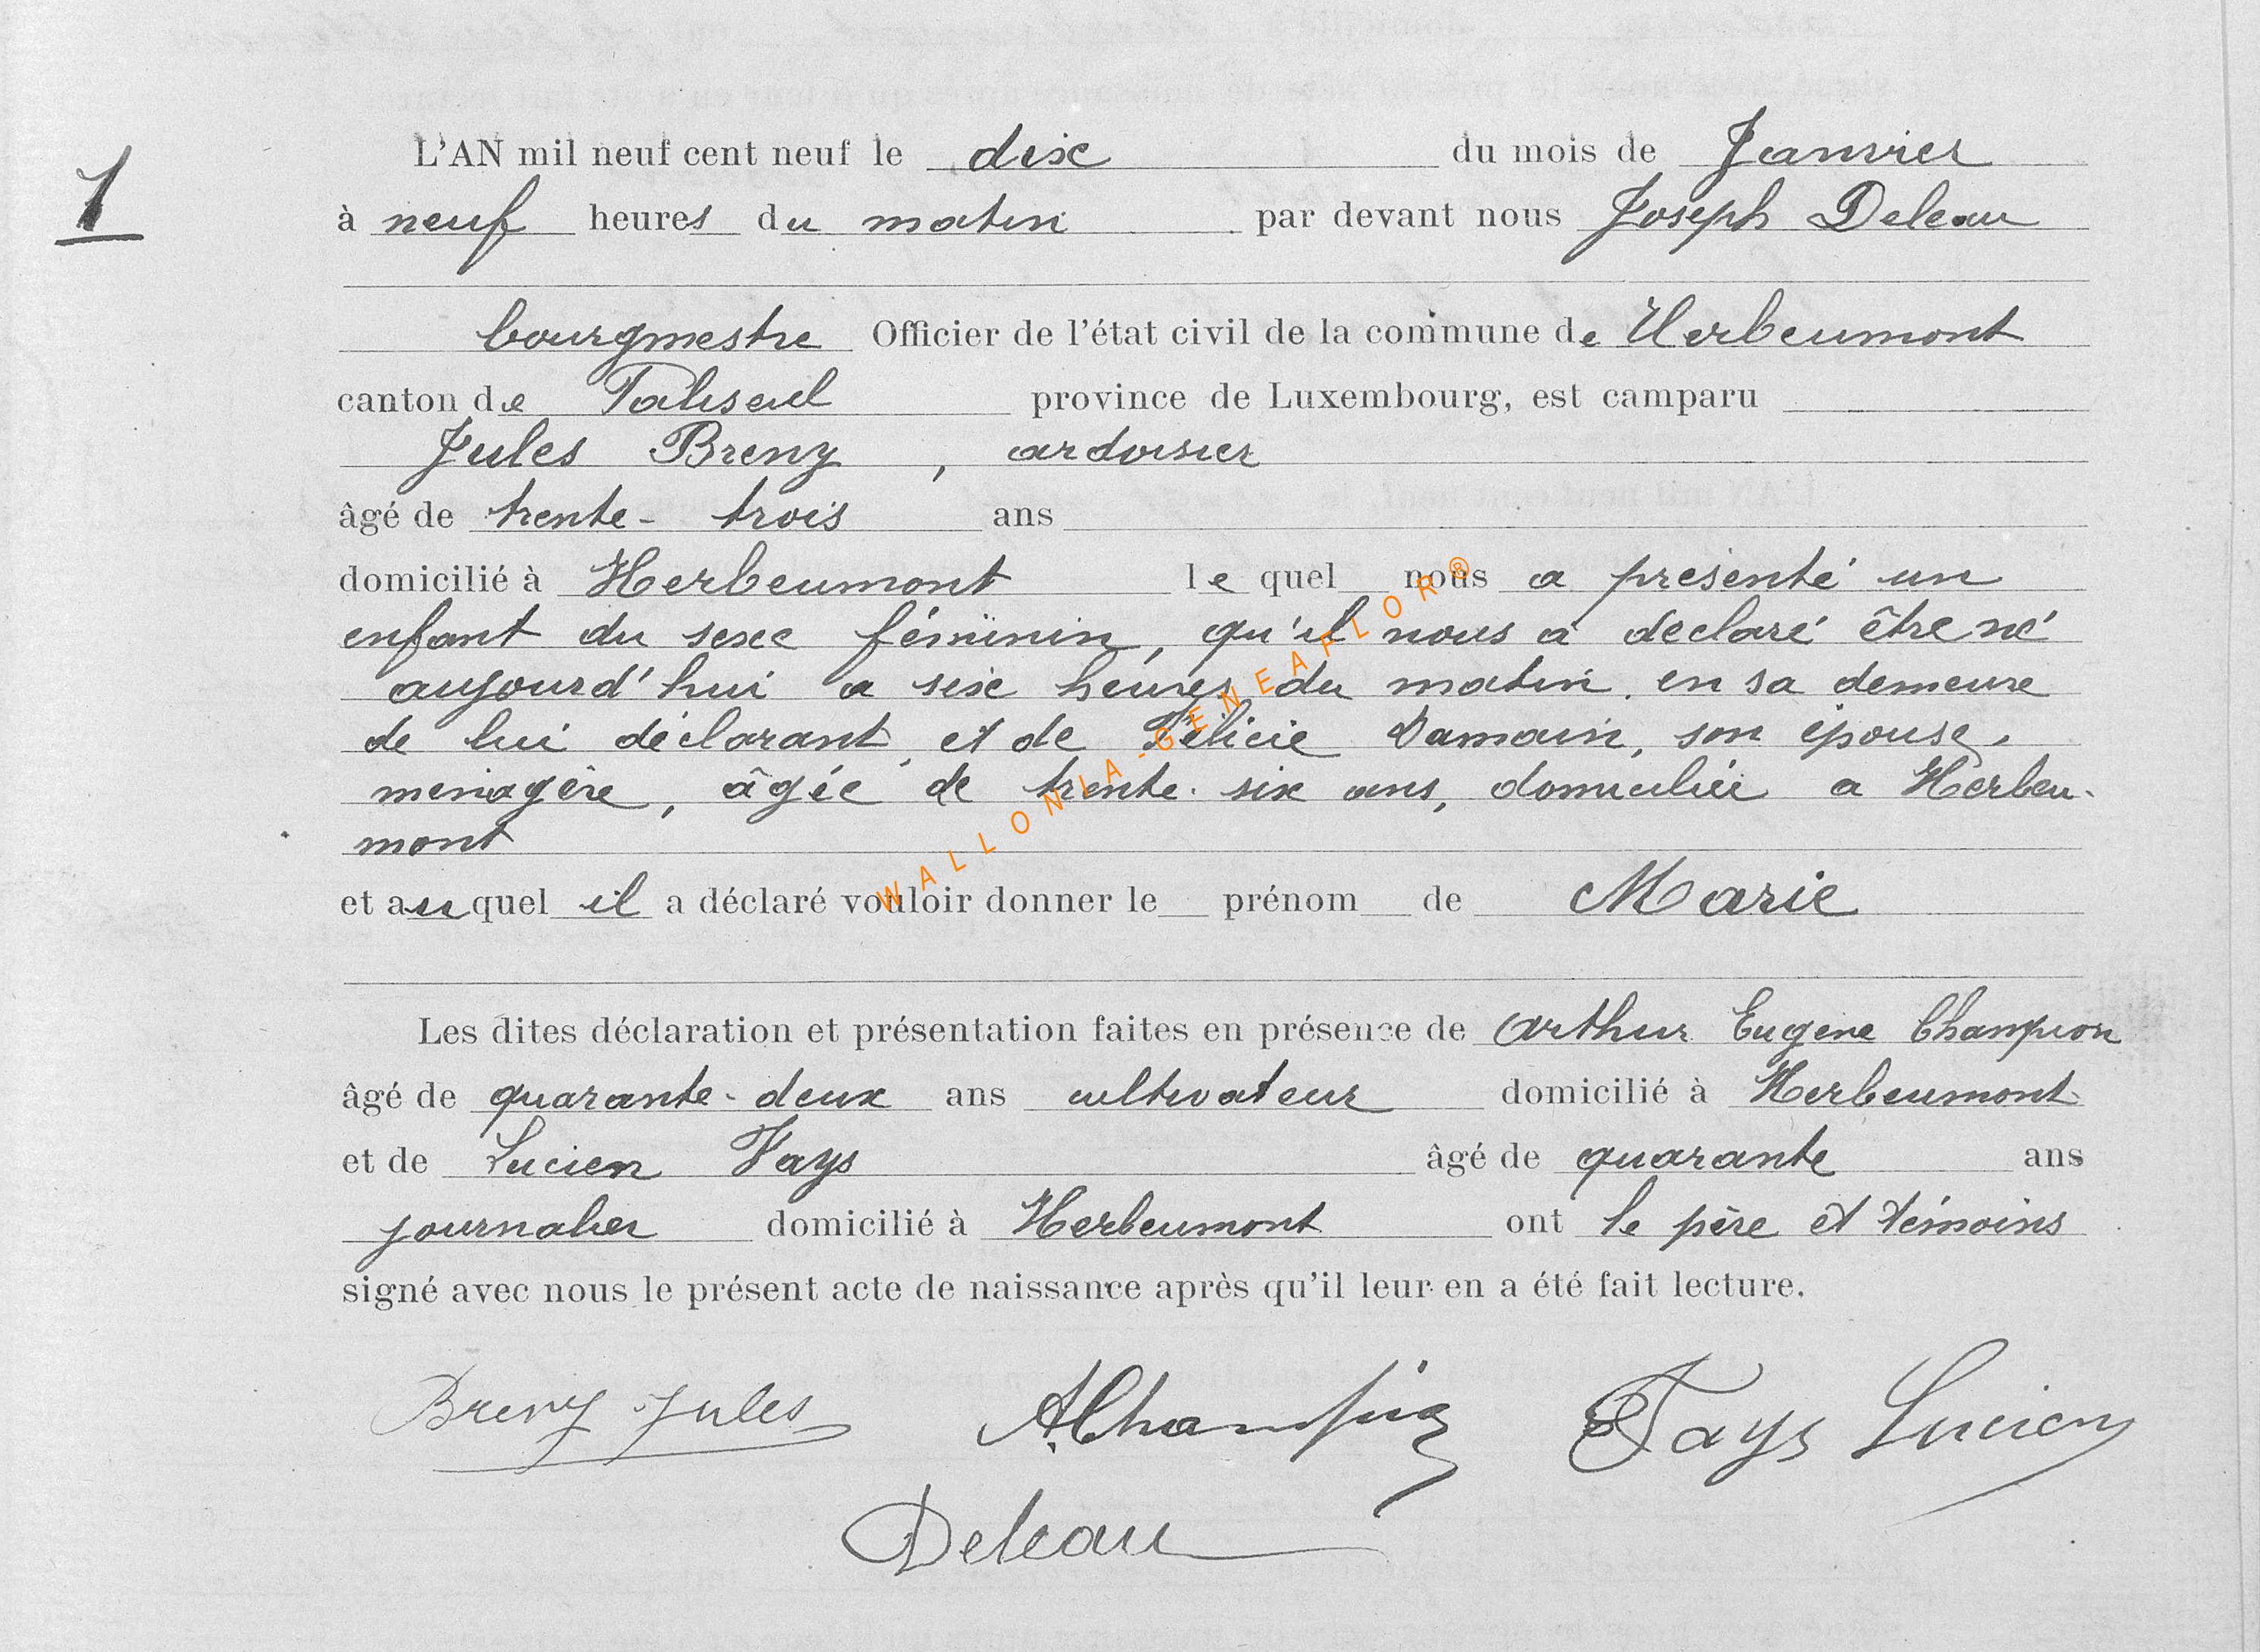 L'AN mil neuf cent neuf le dix du mois de Janvier
1
à neuf heures du matin par devant nous Joseph Deleau
bourgmestre Officier de l'état civil de la commune de Herbeumont
canton de Paliseul province de Luxembourg, est camparu
Jules Breny, ardoisier
âgé de trente-trois ans
domicilié à Herbeumont le quel nous a présenté un
enfant du sexe féminin, qu'il nous a déclaré être né
aujourd'hui a six heures du matin, en sa demeure
de lui déclarant, et de Félicie Damain, son épouse,
ménagère, âgée de trente-six ans, domiciliée a Herbeu-
mont
et auquel il a déclaré vouloir donner le prénom de Marie
Les dites déclaration et présentation faites en présence de Arthur Eugène Champion
âgé de quarante-deux ans cultivateur domicilié à Herbeumont
et de Lucien Fays âgé de quarante ans
journalier domicilié à Herbeumont ont le père et témoins
signé avec nous le présent acte de naissance après qu'il leur en a été fait lecture.
Breny Jules A. Champion Fays Lucien
Deleau
WALLONIA-GENEAFLOR®